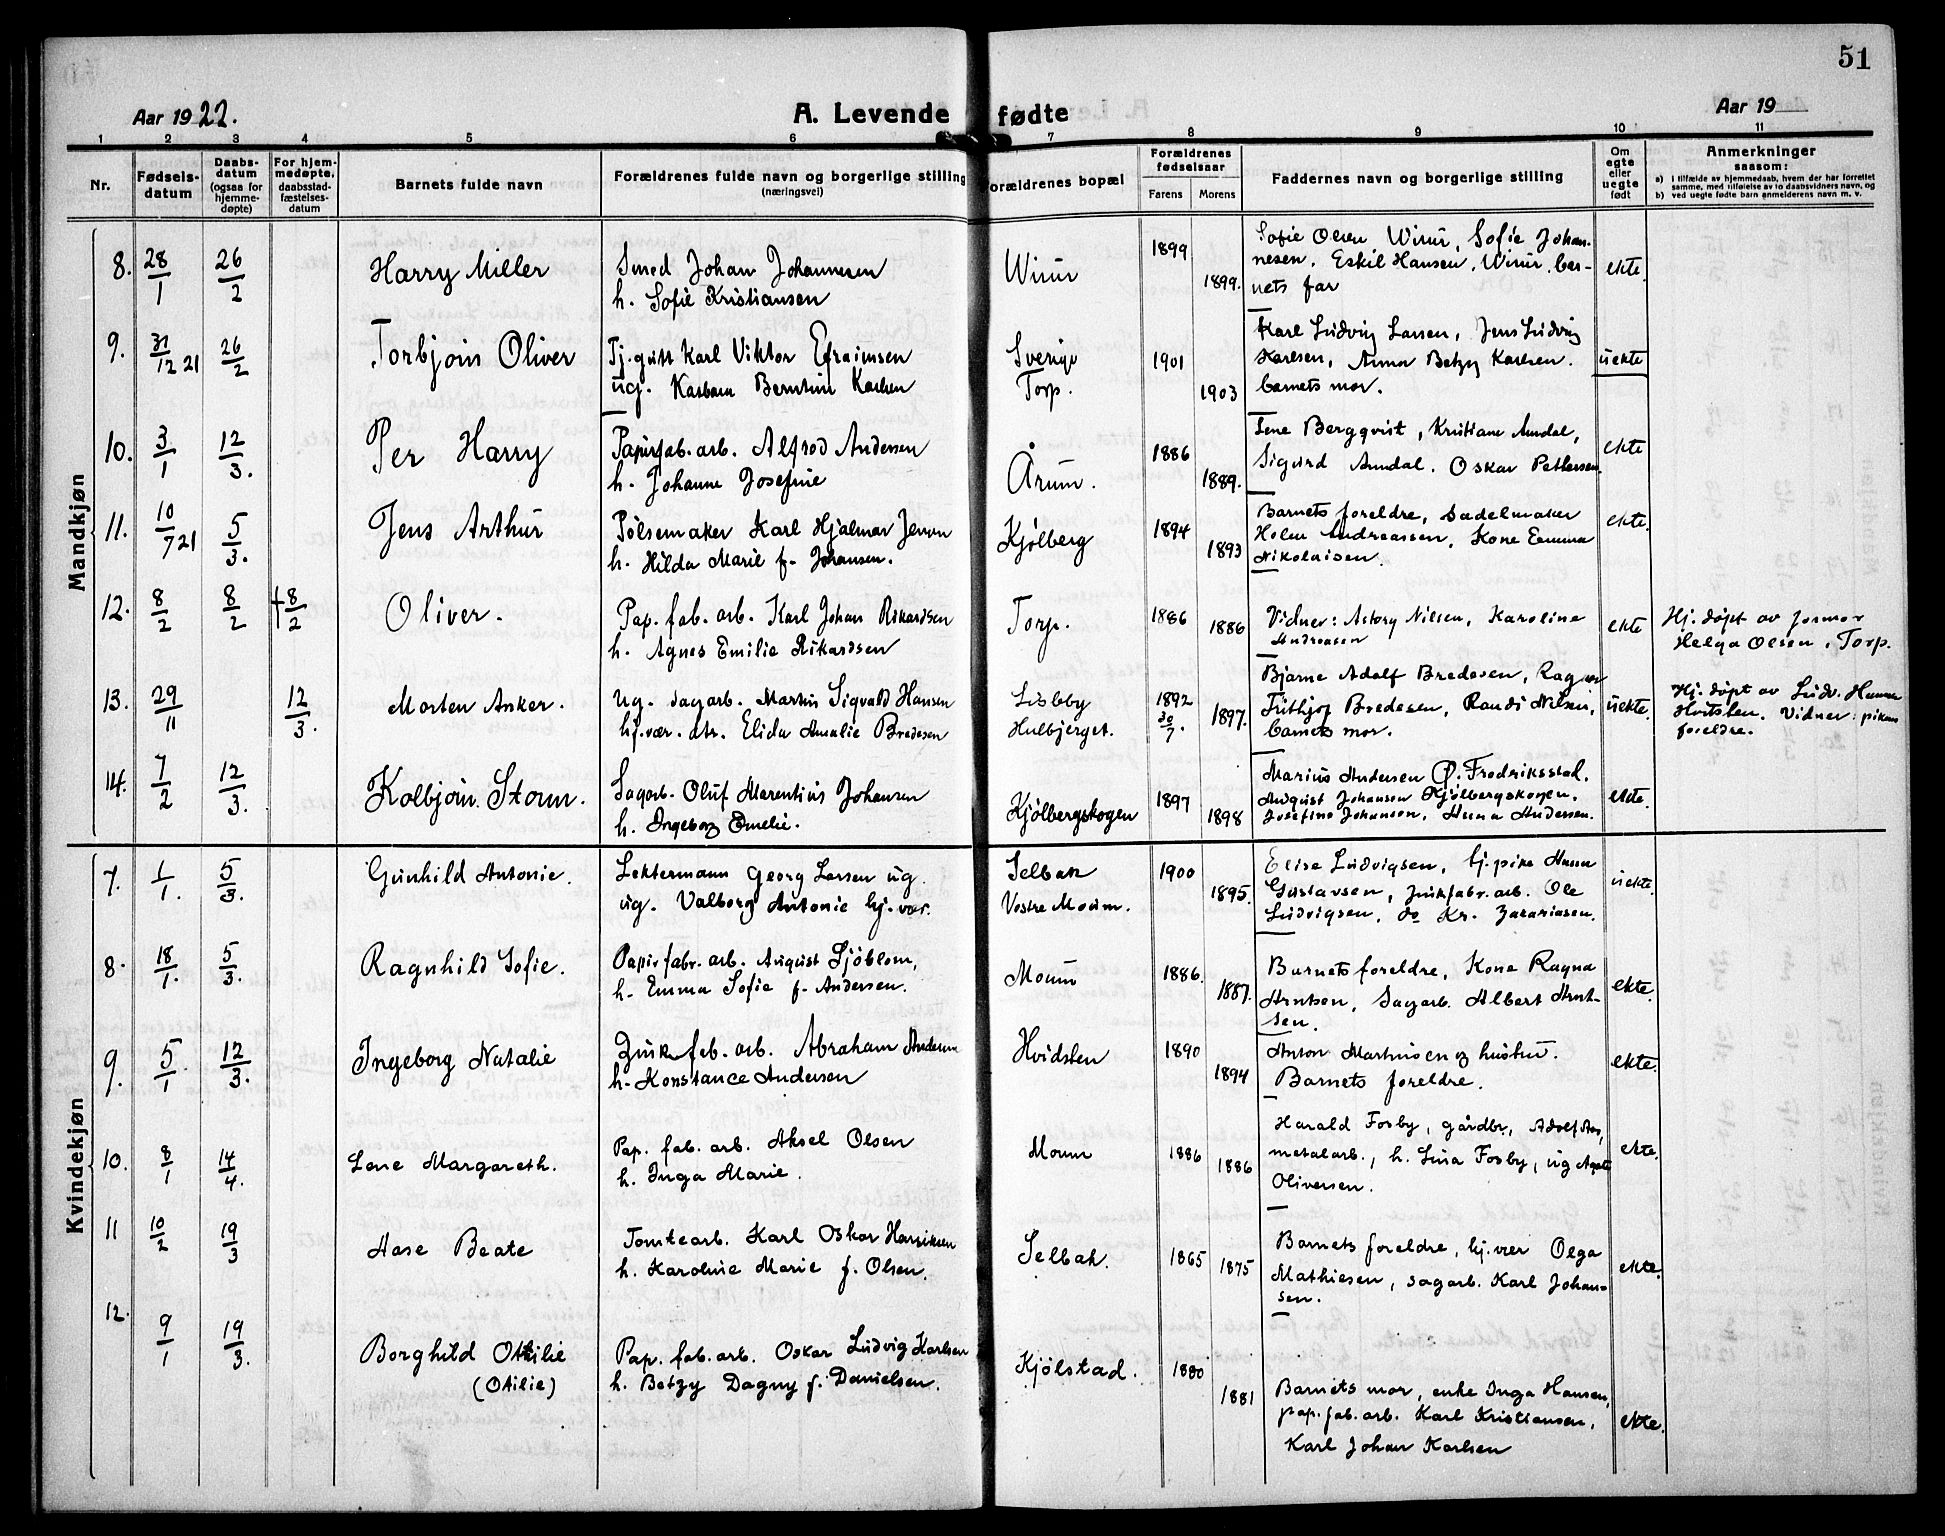 51
Aar 1922. A. Levende fødte Aar 19
1 2 3 4 5 6 7 8 9 10 11
Nr. Fødsels-datum Daabs-datum (ogsaa for hjemme-døpte) For hjem-medøpte, daabsstad-fæstelses-datum Barnets fulde navn Forældrenes fulde navn og borgerlige stilling (næringsvei) Forældrenes bopæl Forældrenes fødselsaar Farens Morens Faddernes navn og borgerlige stilling Om egte eller uegte født Anmerkninger saasom:
a) i tilfælde av hjemmedaab, hvem der har forrettet samme, med tilføielse av to daabsvidners navn, og
b) ved uegte fødte barn anmelderens navn m. v.
Mandkjøn
8. 28/1 26/2 Harry Miller Smed Johan Johannesen Wiur 1899 Sofie Olsen Wiur, Sofie Johan-
h. Sofie Kristiansen 1899. nesen, Eskil Hansen, Wiur, bar- ekte.
nets far
9. 31/12 21 26/2 Torbjørn Oliver Tj.gutt Karl Viktor Efraimsen Sverige 1901 Karl Ludvig Larsen, Jens Ludvig
ug. Barbara Berntine Karlsen Torp. 1903 Karlsen, Anna Betzy Karlsen. uekte
barnets mor.
10. 3/1 12/3. Per Harry Papirfab. arb. Alfred Andersen Årum. 1886 Lene Bergqvist, Kristiane Amdal, ekte
h. Johanne Josefine 1889. Sigurd Amdal. Oskar Pettersen.
11. 10/7 21 5/3. Jens Arthur Pølsemaker Karl Hjalmar Jensen Kjølberg 1894 Barnets foreldre, sadelmaker ekte.
h. Hilda Marie f. Johansen. 1893 Holm Andreassen, Kone Emma
Nikolaisen.
12. 8/2 8/2 † 8/2 Oliver. Pap. fab. arb. Karl Johan Rikardsen Torp. 1886 1886 Vidner: Astory Nilsen, Karoline ekte Hj. døpt av formor
h. Agnes Emilie Rikardsen Andreasen Helga Olsen, Torp.
13. 29/11 12/3. Morten Anker. ug. sagarb. Martin Sigvald Hansen Lisbby 1892 30/7. 1897. Bjarne Adolf Bredesen, Ragnar uekte. Hj. døpt av Ludv. Hansen
hj.vær. dtr. Elida Amalie Bredesen Hulbjerget. Frithjof Bredesen, Randi Nilsen, Hvitsten. Vidner: pikens
barnets mor. foreldre.
14. 7/2 12/3. Kolbjørn Storm. Sagarb. Oluf Marentius Johansen Kjølbergskogen 1897 1898 Marius Andersen Ø. Fredriksstad, ekte.
h. Ingeborg Emelie. Andqvist Johansen Kjølbergskogen,
Josefine Johansen, Anna Andersen.
Kvindekjøn
7. 1/1. 5/3. Gunhild Antonie. Lektermann Georg Larsen ug. Selbak 1900 Elise Ludvigsen, tj.pike Hanna uekte.
ug. Valborg Antonie hj. vær. Vestre Moum. 1895. Gustavsen, zinkfabr. arb. Ole
Ludvigsen, do Kr. Zakariasen.
8. 18/1. 5/3. Ragnhild Sofie. Papirfabr. arb. August Sjöblom, Moum 1886. Barnets foreldre, Kone Ragna ekte.
h. Emma Sofie f. Andersen. 1887. Arntsen, Sagarb. Albert Arnt-
sen.
9. 5/1 12/3. Ingeborg Natalie Zink fab. arb. Abraham Andersen Hvidsten 1890 Anton Martinsen og hustru. ekte.
h. Konstance Andersen 1894 Barnets foreldre.
10. 8/1 14/4. Lene Margareth. Pap. fab. arb. Aksel Olsen Moum 1886 1886 Harald Fosby, gårdbr., Adolf Aas, ekte.
h. Inga Marie. metalarb., h. Lina Fosby, ug Agate
Oliversen.
11 10/2 19/3 Aase Beate Tomtearb. Karl Oskar Henriksen Selbak. 1865 1875 Barnets foreldre, hj. vær Olga ekte.
h. Karoline Marie f. Olsen. Mathiesen, sagarb. Karl Johan-
sen.
12. 9/1 19/3. Borghild Ottilie Pap. fab. arb. Oskar Ludvig Karlsen Kjølstad. 1880
(Otilie) h. Betzy Dagny f. Danielsen. 1881 Barnets mor, enke Inga Hansen,
pap. fab. arb. Karl Kristiansen, ekte.
Karl Johan Karlsen